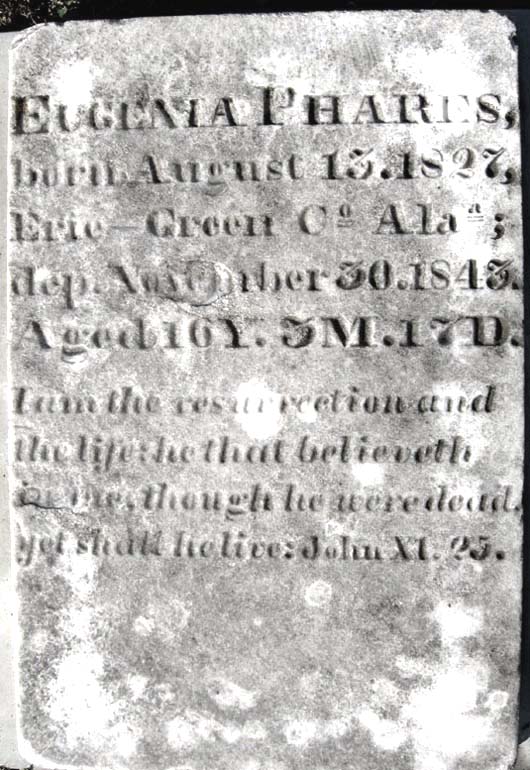 EUGENIA PHARES,
born August 13.1827,
Erie—Green Cº Alaª;
dep. November 30.1843.
Aged 16Y. 3M. 17D.
I am the resurrection and
the life: he that believeth
in me, though he were dead,
yet shall he live: John XI. 25.